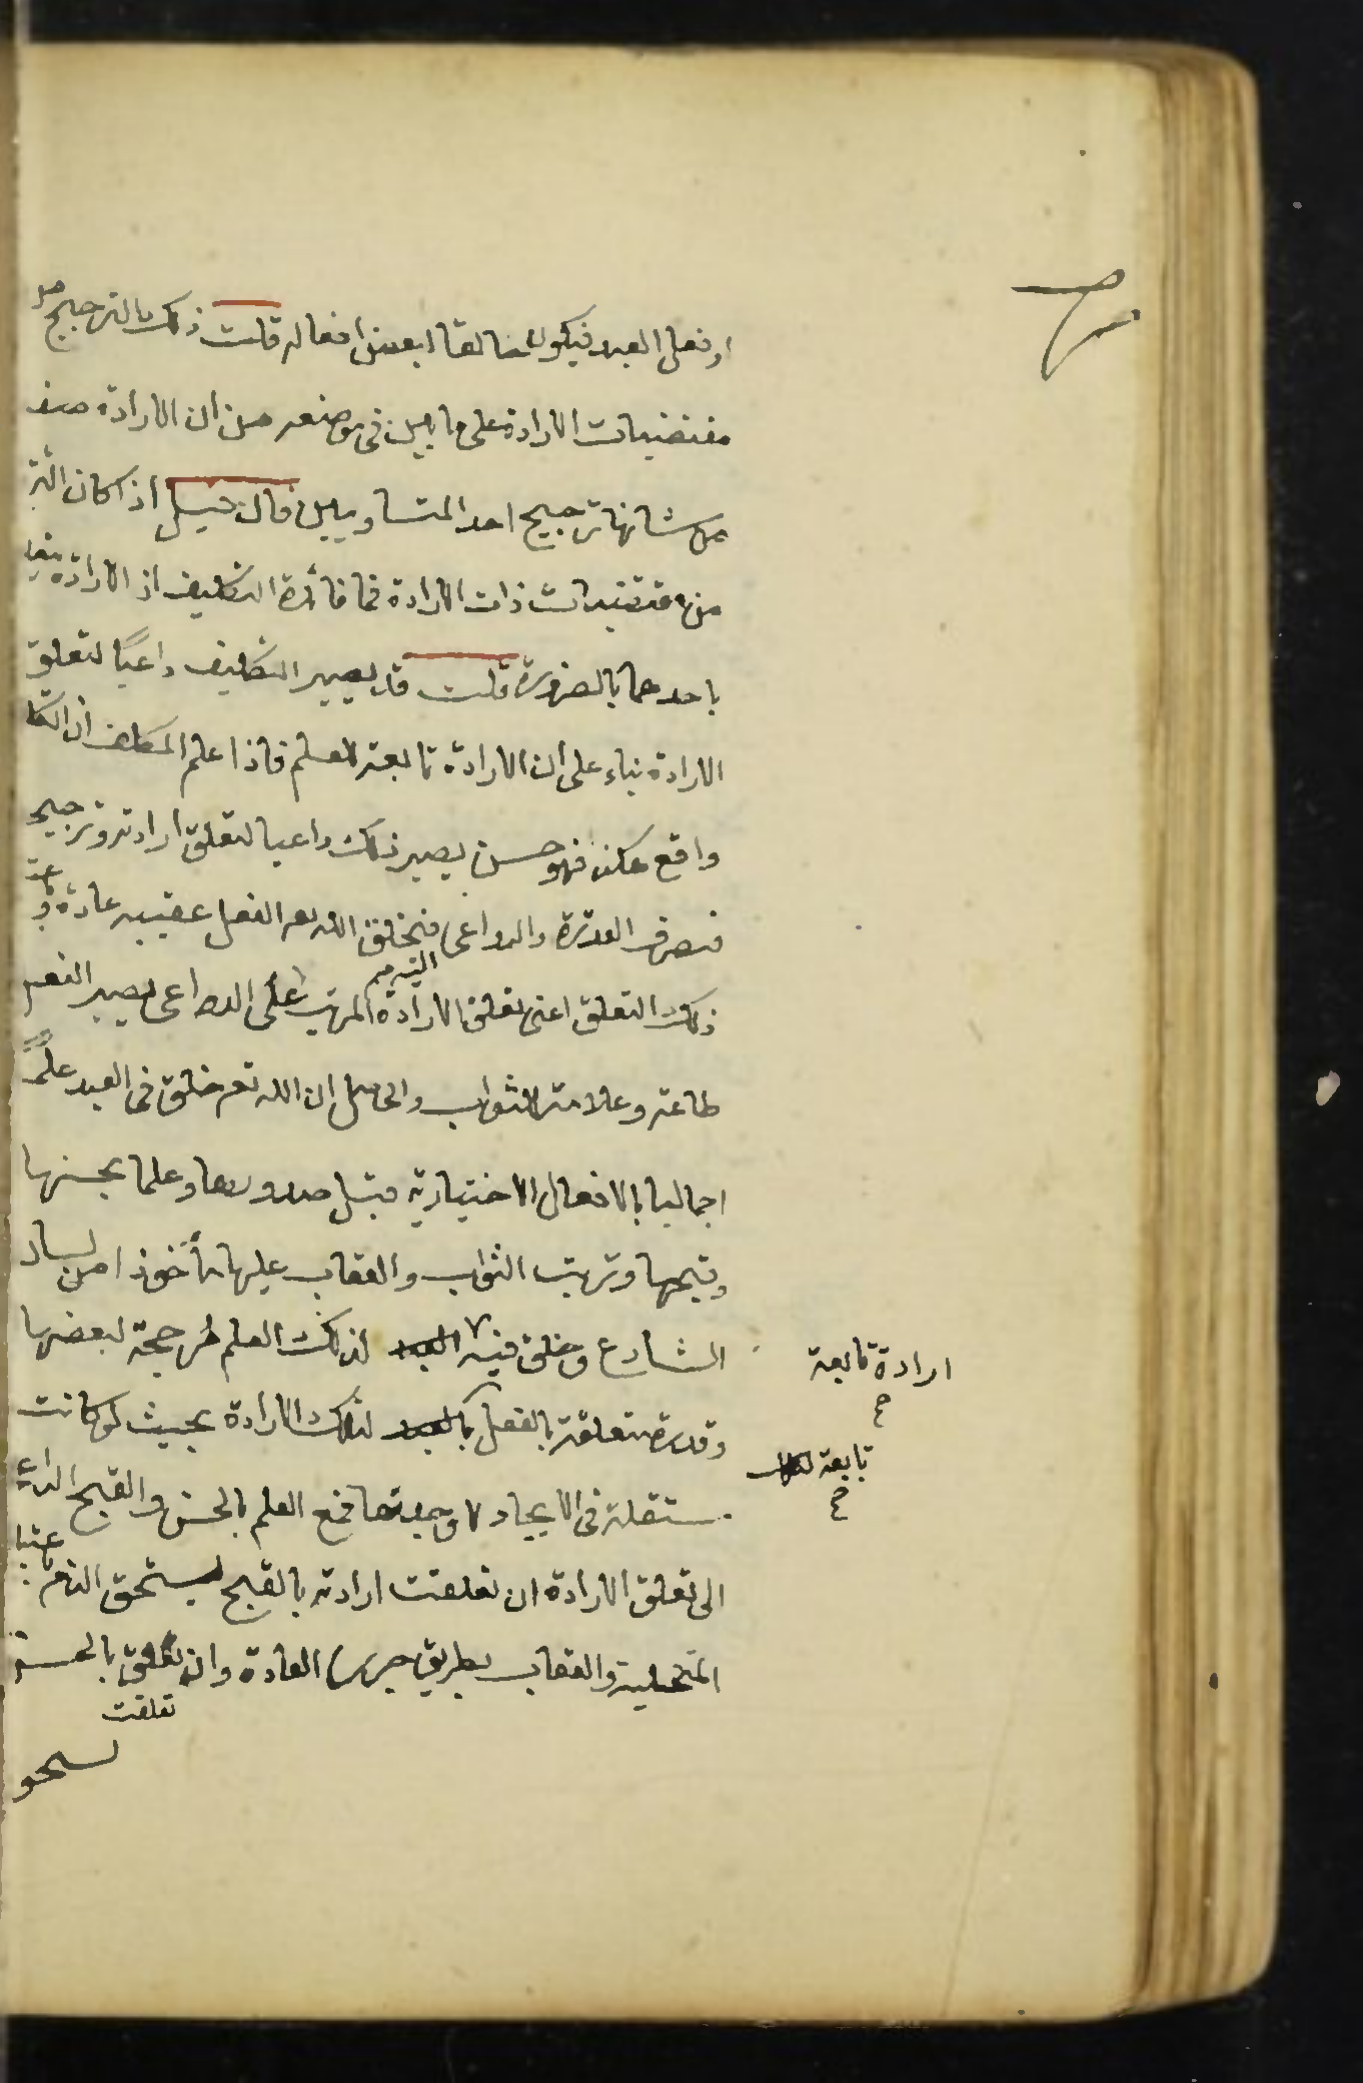 او فعل العبد فيكون خالقا لبعض افعاله قلت ذلك الترجيح من
مقتضيات الارادة على ما بين في موضعه من ان الارادة صفة
من شانها ترجيح احد المتساويين فان قيل اذا كان التر
من مقتضيات ذات الارادة فما فائدة التكليف اذ الارادة
باحدهما بالضرورة قلت قد يصير التكليف داعيًا لتعلق
الارادة بناء على أن الارادة تابعة للعلم فاذا علم المكلف ان
واقع فهو حسن يصير ذلك داعيا لتعلق ارادته وترجيح
فتصرف القدرة والدواعى فيخلق الله تعم الفعل عقيبه عادة
ذلك التعلق اعنى تعلق الارادة المرتب على الدواعى يصير الفعل
طاعة وعلامة للثواب والحاصل ان الله تعم خلق فى العبد علمًا
اجماليا بالافعال الاختيارية قبل صدورها وعلما بحسنها
وقبحها وترتب الثواب والعقاب عليها مأخوذا من لسان
الشارع وخلق فيه لذلك العلم مرجحة لبعضها
وقدرة متعلقة بالفعل لتلك الارادة بحيث لو كانت
مستقلة فى الايجاد لاوجدتها فمع العلم بالحسن والقبح الداعى
الى تعلق الارادة ان تعلقت ارادته بالقبيح يستحق الذم
والعقاب بطريق جرى العادة وان تعلق بالحسنة
تعلقت
يستحق
ارادة تابعة
صح
تابعة
صح